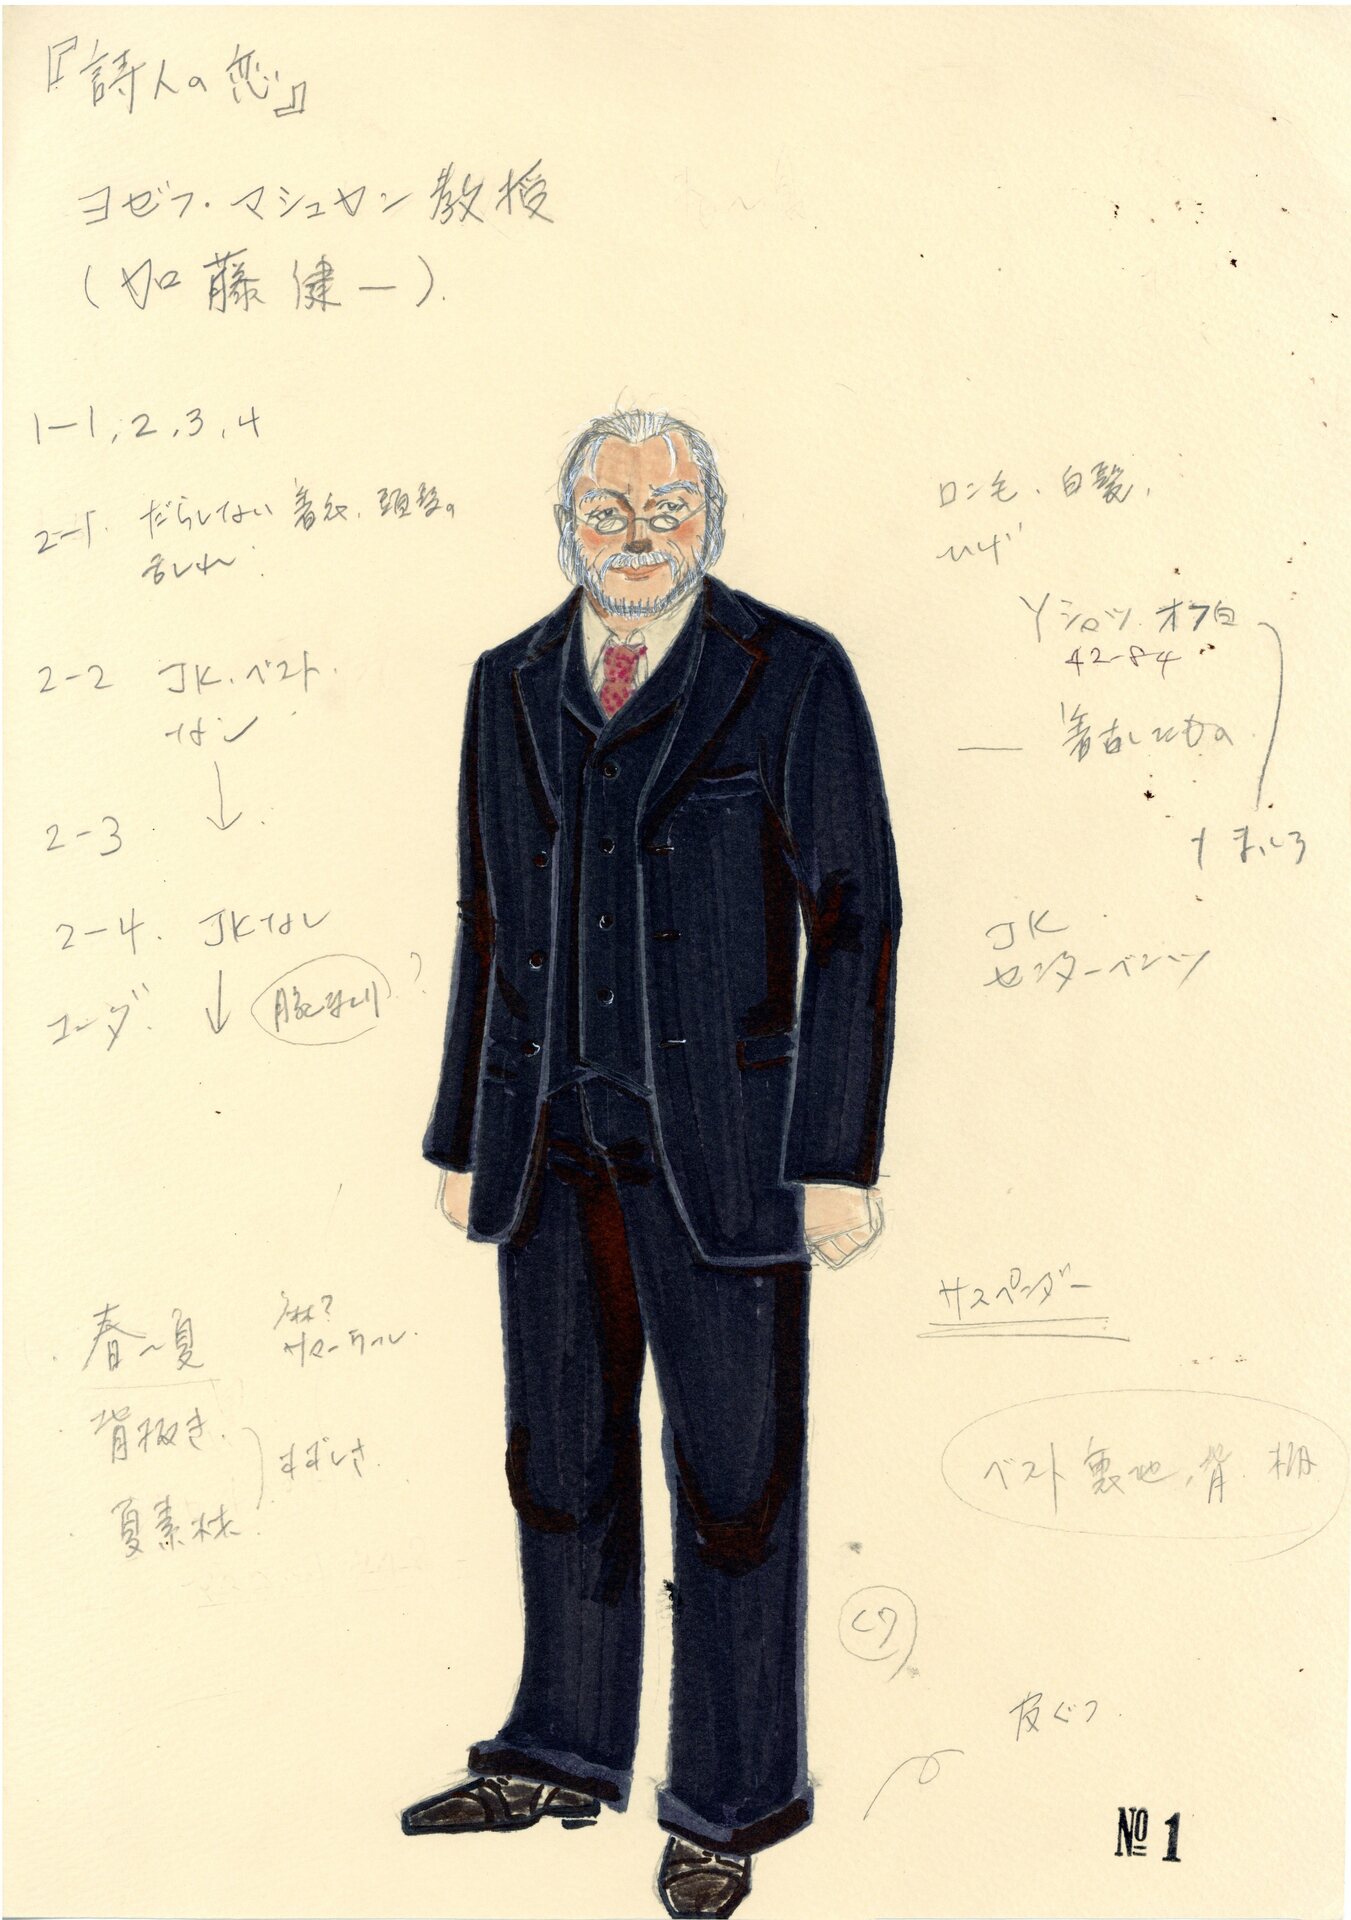 『詩人の恋』
ヨゼフ・マシュカン教授
(加藤健一).
1-1, 2, 3, 4
2-1. だらしない 着衣、頭髪の
乱れ.
2-2 JK、ベスト
なし
↓
2-3
2-4. JKなし
コーダ. ↓ ?
ロン毛、白髪、
ひげ
Yシャツ オフ白
42-84
着古したもの
JK
センターベンツ
サスペンダー
春〜夏 麻?
サマーウール.
背抜き.
すずしさ
夏素材.
ベスト 裏地、背
皮ぐつ
№ 1